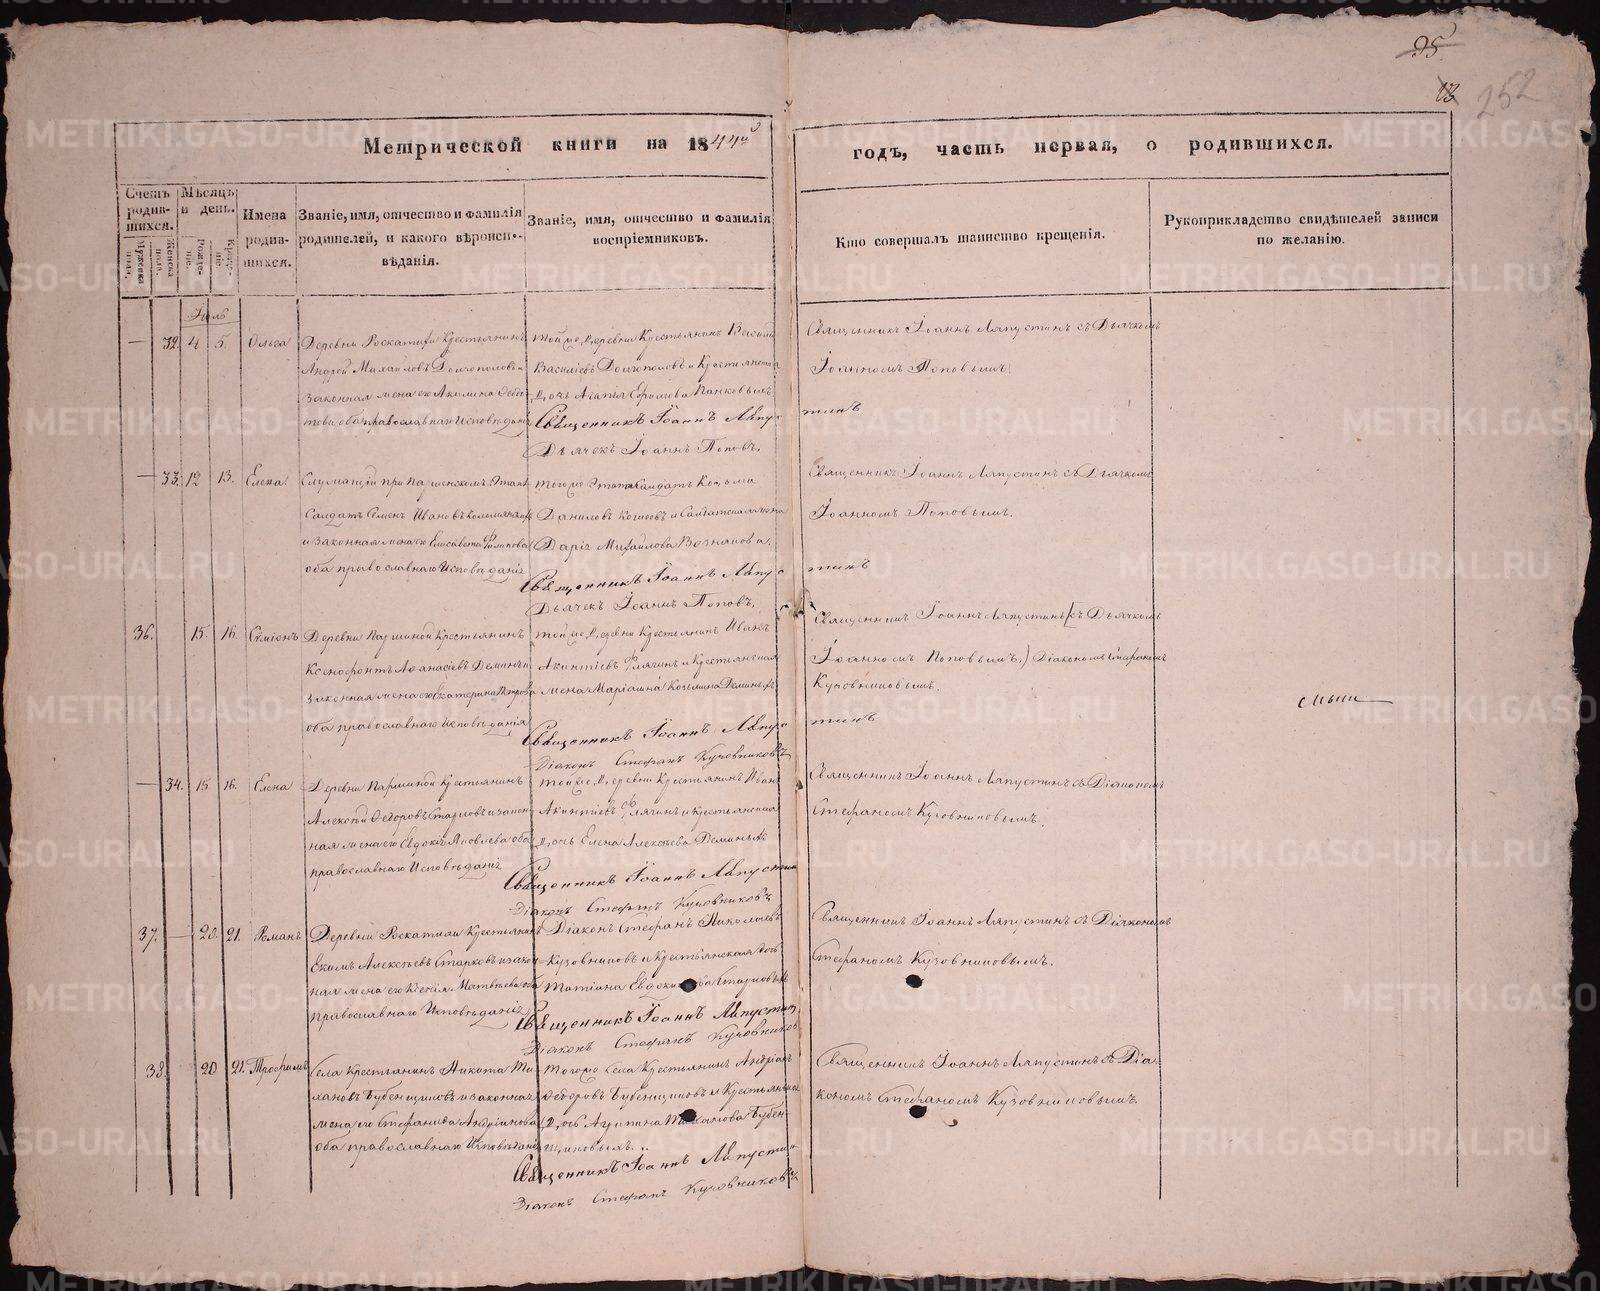 95
13 252
Метрической книги на 1844й годъ, часть первая, о родившихся.
Счетъ родив-шихся.
Мужеска пола.
Женска пола.
Мѣсяцъ и день.
Рожде-ніе.
Креще-ніе.
Имена родив-шихся.
Званіе, имя, отчество и фамилія родителей, и какого вѣроиспо-вѣданія.
Званіе, имя, отчество и фамилія воспріемниковъ.
Кто совершалъ таинство крещенія.
Рукоприкладство свидѣтелей записи по желанію.
Іюль
— 32. 4 5. Ольга
Деревни Роскатихи Крестьянинъ
Андрей Михайловъ Долгополовъ и
законная жена его Акилина Ѳедо-
това оба православнаго Исповѣданія
той же деревни Крестьянинъ Василій
Василіевъ Долгополовъ и Крестьянская
дочь Агапія Ефремова Панковыхъ
Священникъ Іоаннъ Ляпустинъ
Дьячекъ Іоаннъ Поповъ.
Священникъ Іоаннъ Ляпустинъ съ Дьячкомъ
Іоанномъ Поповымъ
— 33. 12 13. Елена
Служащій при Паршенскомъ Этапѣ
Салдатъ Семенъ Ивановъ
и законная жена его Елисавета Филипова
оба православнаго Исповѣданія
того же Этапа Салдатъ Козьма
Даниловъ и Салдатская жена
Дарія Михайлова
Священникъ Іоаннъ Ляпустинъ
Дьячекъ Іоаннъ Поповъ.
Священникъ Іоаннъ Ляпустинъ съ Дьячкомъ
Іоанномъ Поповымъ.
36. 15. 16. Симіонъ
Деревни Паршиной Крестьянинъ
Ксенофонтъ Аѳанасіевъ Деминъ и
законная жена его Екатерина Петрова
оба православнаго Исповѣданія
той же деревни Крестьянинъ Иванъ
Акинтіевъ Флягинъ и Крестьянская
жена Маріамна Козьмина Деминыхъ
Священникъ Іоаннъ Ляпустинъ
Діаконъ Стефанъ Кузовниковъ
Священникъ Іоаннъ Ляпустинъ (съ Дьячкомъ
Іоанномъ Поповымъ.) Діакономъ Стефаномъ
Кузовниковымъ.
— 34. 15 16. Елена
Деревни Паршиной Крестьянинъ
Алексѣй Ѳедоровъ Старковъ и закон-
ная жена его Евдокія Яковлева оба
православнаго Исповѣданія
той же деревни Крестьянинъ Иванъ
Акинтіевъ Флягинъ и крестьянская
дочь Елена Алексѣева Деминыхъ
Священникъ Іоаннъ Ляпустинъ
Діаконъ Стефанъ Кузовниковъ
Священникъ Іоаннъ Ляпустинъ съ Діакономъ
Стефаномъ Кузовниковымъ.
37. — 20. 21. Романъ
Деревни Роскатихи Крестьянинъ
Екимъ Алексѣевъ Старковъ и закон-
ная жена его Ксенія Матвѣева оба
православнаго Исповѣданія
Діаконъ Стефанъ Николаевъ
Кузовниковъ и Крестьянская дочь
Татіана Евдокимова Старковыхъ
Священникъ Іоаннъ Ляпустинъ
Діаконъ Стефанъ Кузовниковъ
Священникъ Іоаннъ Ляпустинъ съ Діакономъ
Стефаномъ Кузовниковымъ.
38. 20 21. Трофимъ
Села Крестьянинъ Никита
Бубенщиковъ и законная
жена его Стефанида Андріанова
оба православнаго Исповѣданія
того же села Крестьянинъ Андріанъ
Ѳедоровъ Бубенщиковъ и Крестьянская
дочь Агрипина Бубен-
щиковыхъ.
Священникъ Іоаннъ Ляпустинъ
Діаконъ Стефанъ Кузовниковъ
Священникъ Іоаннъ Ляпустинъ съ Діа-
кономъ Стефаномъ Кузовниковымъ
METRIKI.GASO-URAL.RU